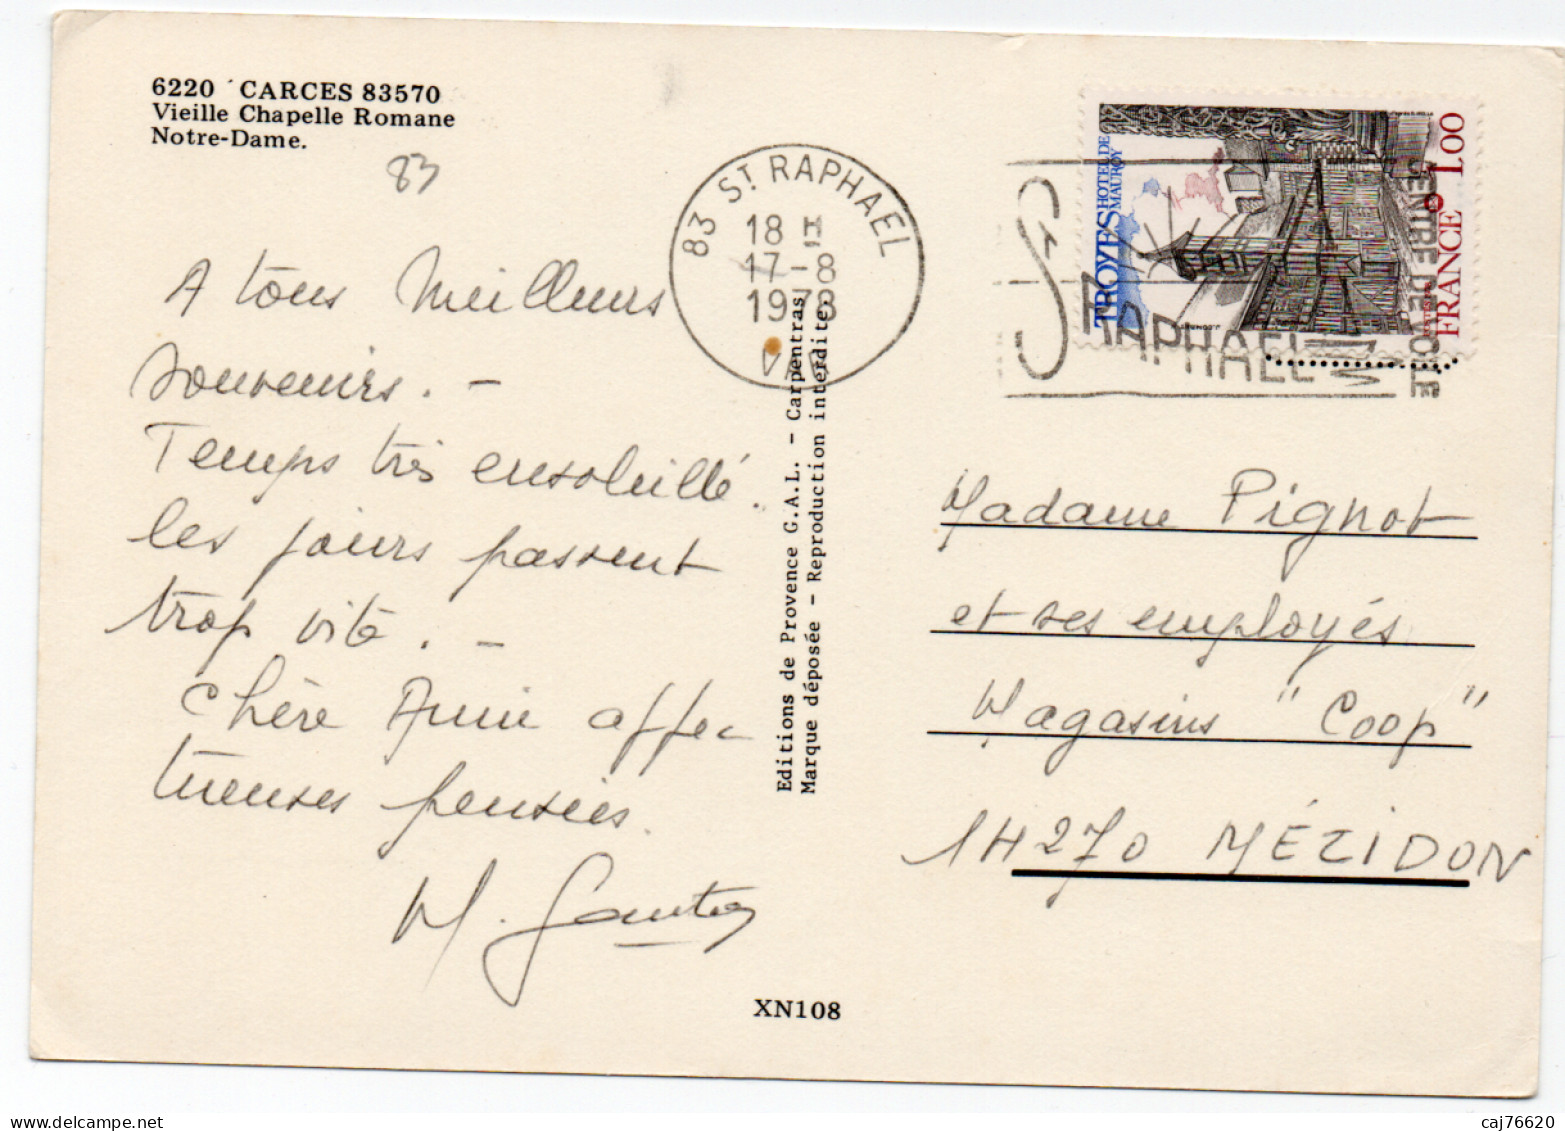 6220 CARCES 83570
Vieille Chapelle Romane
Notre-Dame.
83
A tous Meilleurs
souvenirs. -
Temps très ensoleillé.
les jours passent
trop vite. -
chère Annie affec
tueuses pensées.
M. Gautier
83 ST RAPHAEL
18 H
17-8
1978
VAR
Editions de Provence G.A.L. - Carpentras
Marque déposée - Reproduction interdite.
XN108
TROYES HOTEL DE
MAUROY
1.00
FRANCE
ST RAPHAEL
CENTRE DE VOILE
Madame Pignot
et ses employés
Magasins "Coop"
14270 MÉZIDON
caj76620